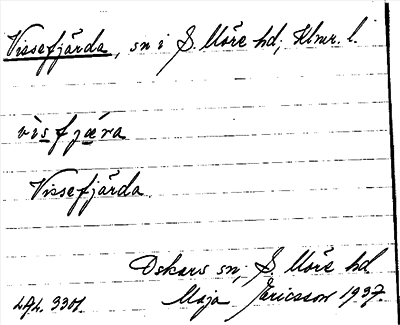 Vissefjärda, sn i S. Möre hd, Klmr. l.
visfjæra
Vissefjärda.
Oskars sn, S. Möre hd
LAL. 3301. Maja Ericsson 1937.